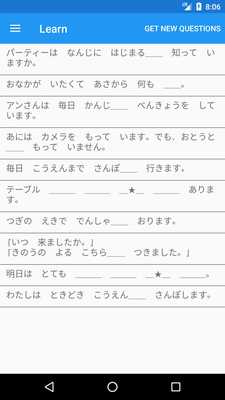 8:06
Learn
GET NEW QUESTIONS
パーティーは　なんじに　はじまる＿＿　知って　い
ますか。
おなかが　いたくて　あさから　何も　＿＿。
アンさんは　毎日　かんじ＿＿　べんきょうを　して
います。
あには　カメラを　もって　います。でも、おとうと
＿＿　もって　いません。
毎日　こうえんまで　さんぽ＿＿　行きます。
テーブル　＿＿＿　＿＿＿　＿★＿　＿＿＿　ありま
す。
つぎの　えきで　でんしゃ＿＿　おります。
「いつ　来ましたか。」
「きのうの　よる　こちら＿＿　つきました。」
明日は　とても　＿＿＿　＿＿＿　＿★＿　＿＿＿。
わたしは　ときどき　こうえん＿＿　さんぽします。